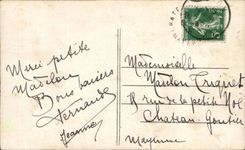 Merci petite
Madelon
Bons baisers
Fernande
Jeanne
Mademoiselle
18 rue de la petite
Chateau-Gontier
Mayenne